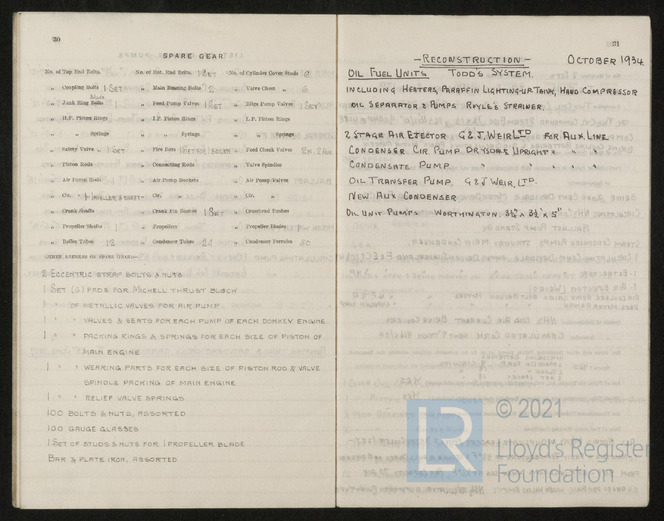 30
SPARE GEAR
No. of Top End Bolts. No. of Bot. End Bolts. 1 SET No. of Cylinder Cover Studs 9
„ Coupling Bolts 1 SET „ Main Bearing Bolts 2 „ Valve Chest „ 6
„ Junk Ring Bolts „ Feed Pump Valves 1 SET „ Bilge Pump Valves 1 SET
„ H.P. Piston Rings „ I.P. Piston Rings „ L.P. Piston Rings
„ „ Springs „ „ Springs „ „ Springs
„ Safety Valve „ 1 SET „ Fire Bars „ Feed Check Valves
„ Piston Rods „ Connecting Rods „ Valve Spindles
„ Air Pump Rods „ Air Pump Buckets „ Air Pump Valves
„ Cir. „ 1 IMPELLER & SHAFT „ Cir. „ „ Cir. „
„ Crank Shafts „ Crank Pin Bushes 1 SET „ Crosshead Bushes
„ Propeller Shafts „ Propellers „ Propeller Blades
„ Boiler Tubes 12 „ Condenser Tubes „ Condenser Ferrules 50
OTHER ARTICLES OF SPARE GEAR:—
2 ECCENTRIC STRAP BOLTS & NUTS
1 SET (6) PADS FOR MICHELL THRUST BLOCK
1 " OF METALLIC VALVES FOR AIR PUMP
1 " " VALVES & SEATS FOR EACH PUMP OF EACH DONKEY ENGINE
1 " " PACKING RINGS & SPRINGS FOR EACH SIZE OF PISTON OF
MAIN ENGINE
1 " " WEARING PARTS FOR EACH SIZE OF PISTON ROD & VALVE
SPINDLE PACKING OF MAIN ENGINE
1 " " RELIEF VALVE SPRINGS
100 BOLTS & NUTS, ASSORTED
100 GAUGE GLASSES
1 SET OF STUDS & NUTS FOR 1 PROPELLER BLADE
BAR & PLATE IRON, ASSORTED
31
— RECONSTRUCTION — OCTOBER 1934
OIL FUEL UNITS TODD'S SYSTEM.
INCLUDING HEATERS, PARAFFIN LIGHTING-UP TANK, HAND COMPRESSOR
OIL SEPARATOR & PUMPS ROYLE'S STRAINER.
2 STAGE AIR EJECTOR G & J. WEIR LTD FOR AUX LINE
CONDENSER CIR. PUMP DRYSDALE UPRIGHT " " "
CONDENSATE PUMP " " " "
OIL TRANSFER PUMP. G & J WEIR, LTD.
NEW AUX CONDENSER
OIL UNIT PUMPS WORTHINGTON. 3½" x 3½" x 5"
© 2021
LR
Lloyd's Register
Foundation